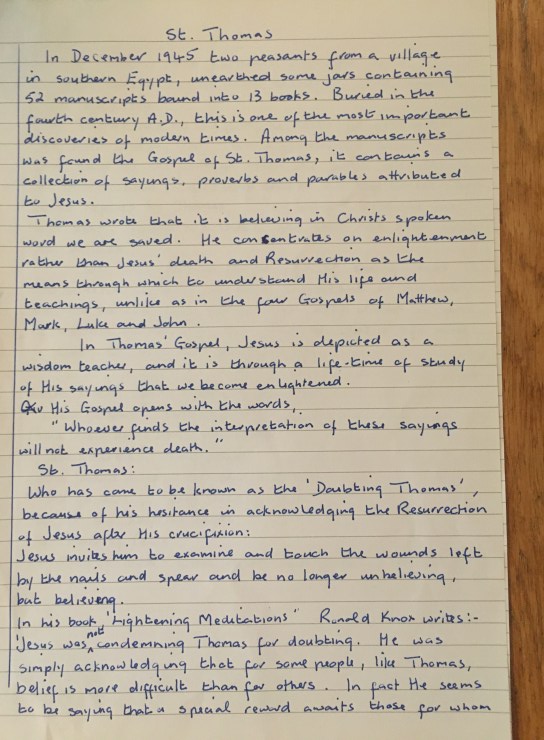 St. Thomas
In December 1945 two peasants from a village
in southern Egypt, unearthed some jars containing
52 manuscripts bound into 13 books. Buried in the
fourth century A.D., this is one of the most important
discoveries of modern times. Among the manuscripts
was found the Gospel of St. Thomas, it contains a
collection of sayings, proverbs and parables attributed
to Jesus.
Thomas wrote that it is believing in Christs spoken
word we are saved. He consentrates on enlightenment
rather than Jesus' death and Resurrection as the
means through which to understand His life and
teachings, unlike as in the four Gospels of Matthew,
Mark, Luke and John.
In Thomas' Gospel, Jesus is depicted as a
wisdom teacher, and it is through a life-time of study
of His sayings that we become enlightened.
His Gospel opens with the words,
"Whoever finds the interpretation of these sayings
will not experience death."
St. Thomas:
Who has come to be known as the 'Doubting Thomas',
because of his hesitance in acknowledging the Resurrection
of Jesus after His crucifixion:
Jesus invites him to examine and touch the wounds left
by the nails and spear and be no longer unbelieving,
but believing.
In his book, 'Lightening Meditations" Ronald Knox writes:-
'Jesus was not condemning Thomas for doubting. He was
simply acknowledging that for some people, like Thomas,
belief is more difficult than for others. In fact He seems
to be saying that a special reward awaits those for whom